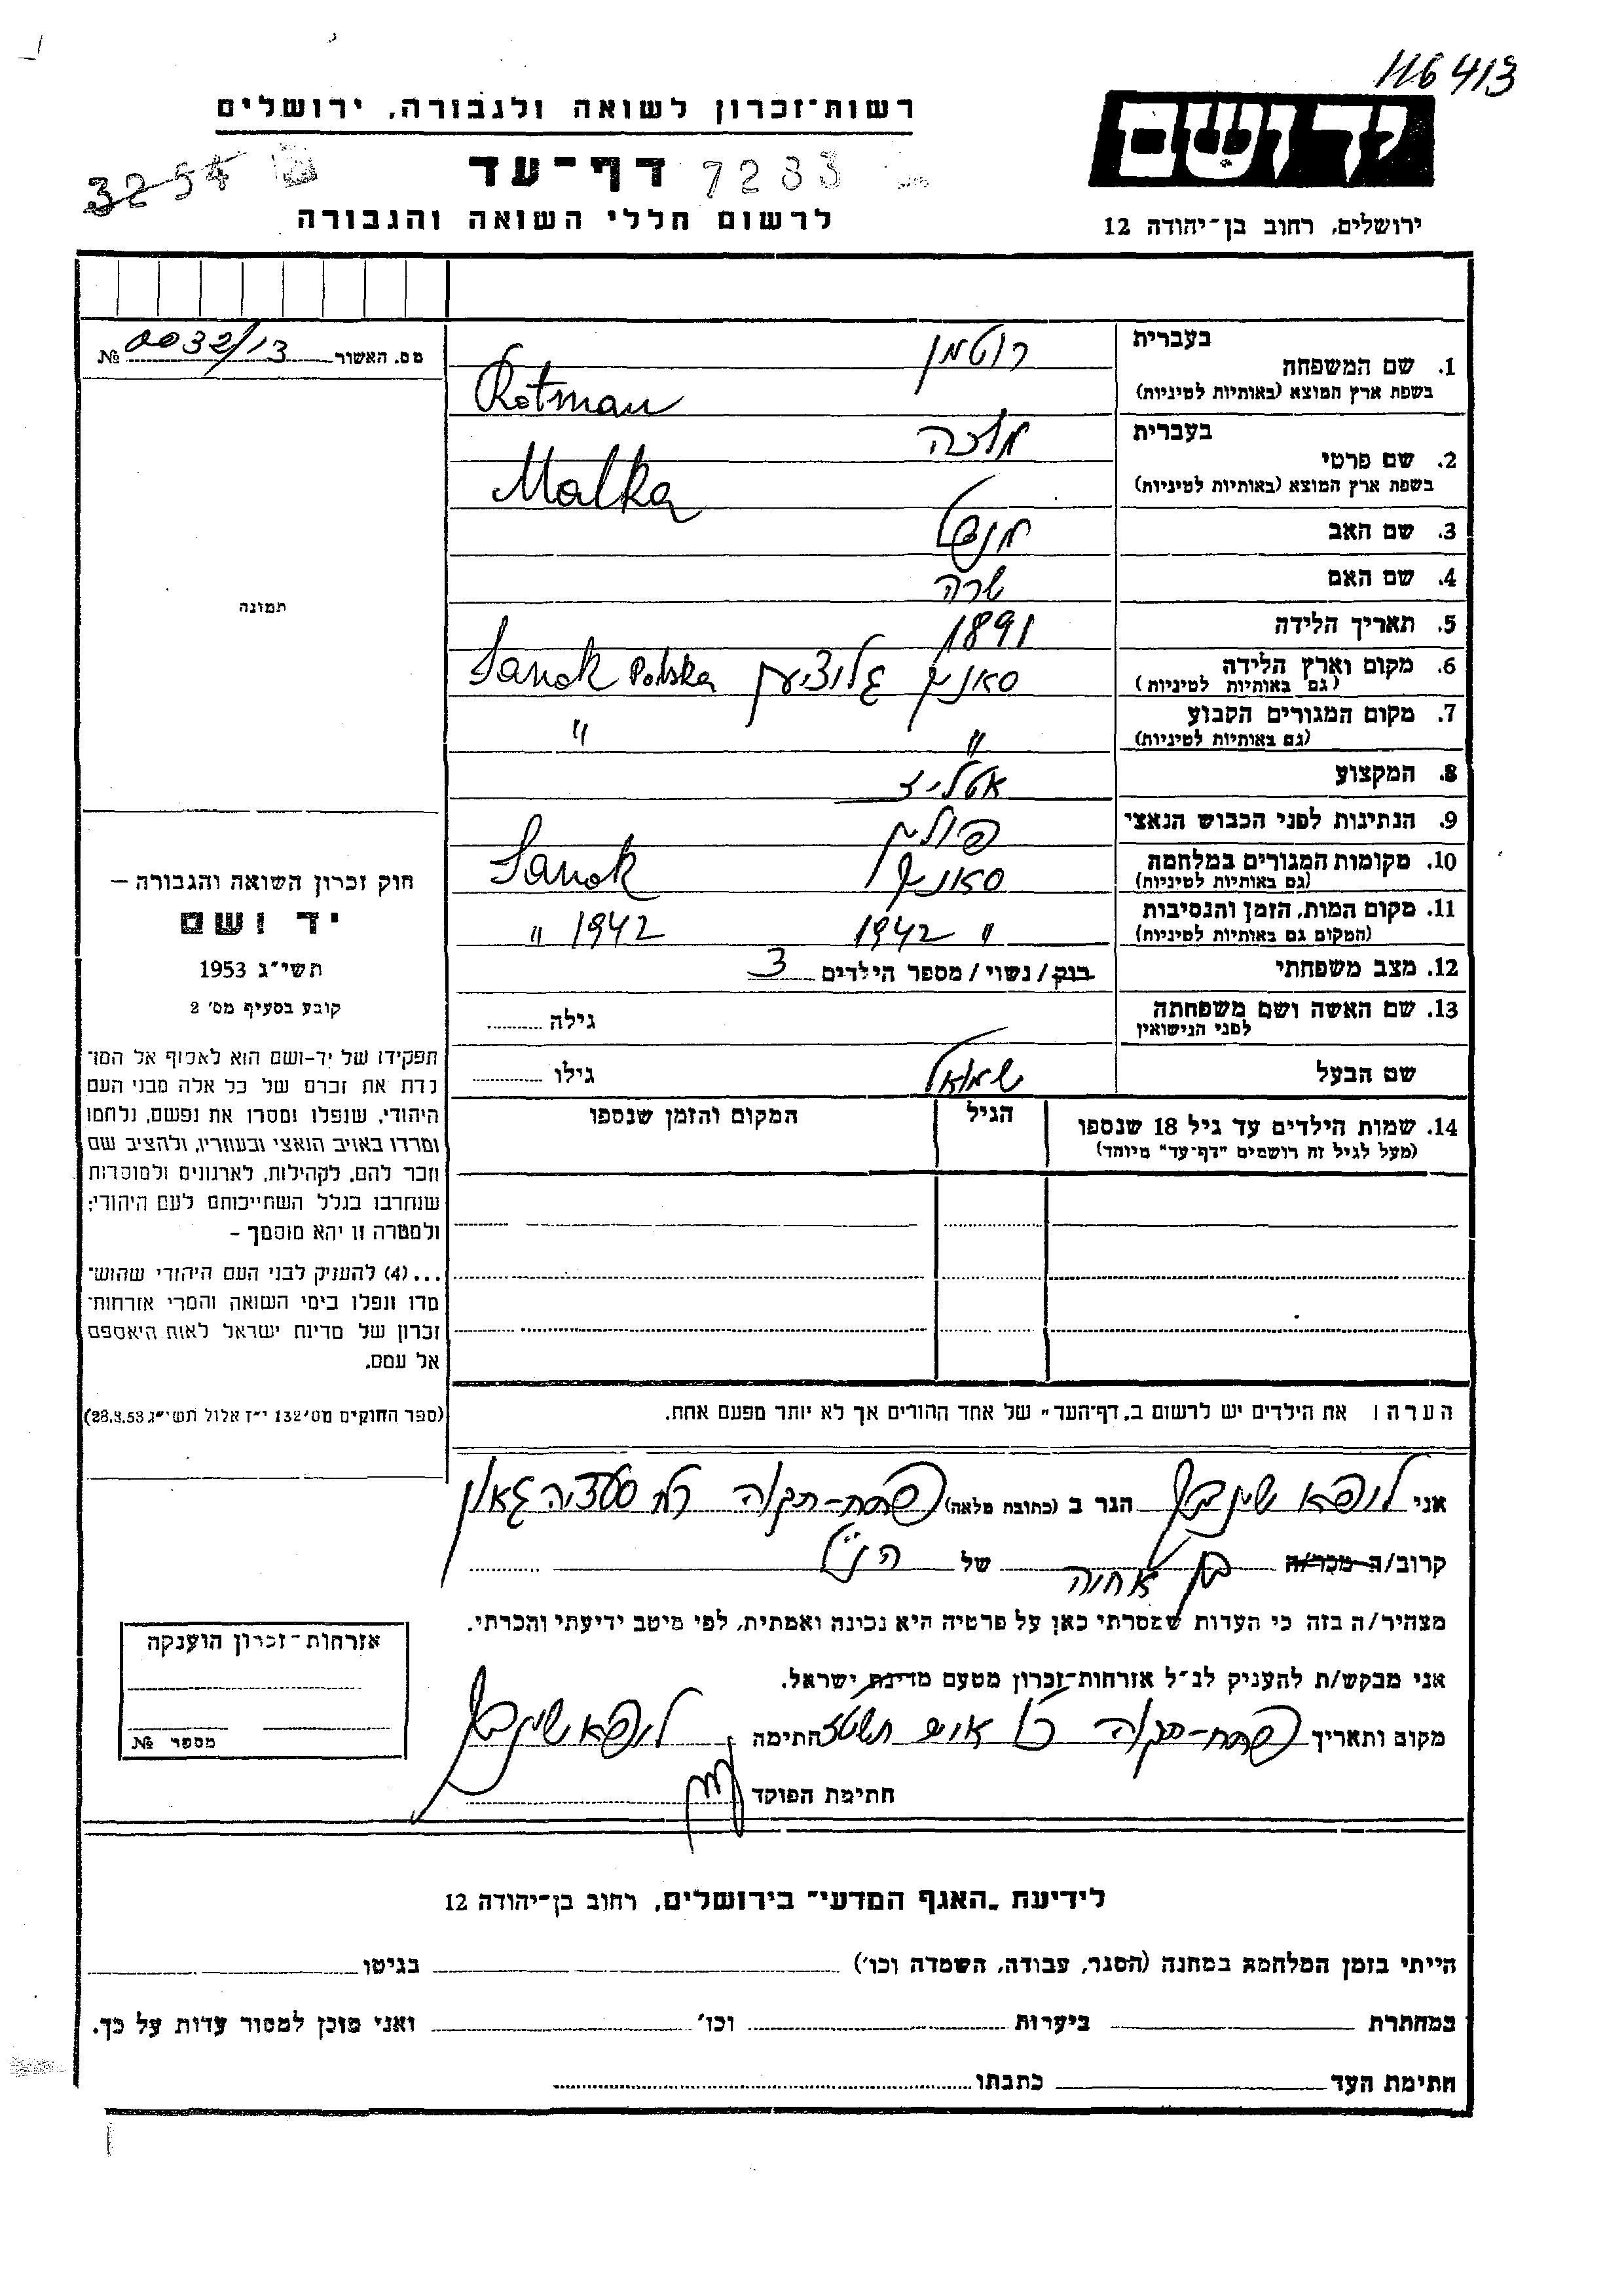 116413
רשות־זכרון לשואה ולגבורה, ירושלים
יד ושם
3254
דף־עד 7233
לרשום חללי השואה והגבורה
ירושלים, רחוב בן־יהודה 12
מס. האשור 0032/13 №
בעברית רוטמן
1. שם המשפחה
בשפת ארץ המוצא (באותיות לטיניות) Rotman
בעברית מלכה
2. שם פרטי
בשפת ארץ המוצא (באותיות לטיניות) Malka
3. שם האב מנדל
4. שם האם שרה
תמונה
5. תאריך הלידה 1891
6. מקום וארץ הלידה סאנוק גליציען Sanok Polska
(גם באותיות לטיניות)
7. מקום המגורים הקבוע " "
(גם באותיות לטיניות)
8. המקצוע אטליז
9. הנתינות לפני הכבוש הנאצי פולין
10. מקומות המגורים במלחמה סאנוק Sanok
(גם באותיות לטיניות)
11. מקום המות, הזמן והנסיבות " 1942 " 1942
(המקום גם באותיות לטיניות)
12. מצב משפחתי רווק / נשוי / מספר הילדים 3
13. שם האשה ושם משפחתה גילה
לפני הנישואין
שם הבעל שמואל גילו
14. שמות הילדים עד גיל 18 שנספו הגיל המקום והזמן שנספו
(מעל לגיל זה רושמים "דף־עד" מיוחד)
חוק זכרון השואה והגבורה –
יד ושם
תשי"ג 1953
קובע בסעיף מס' 2
תפקידו של יד-ושם הוא לאסוף אל המו־
לדת את זכרם של כל אלה מבני העם
היהודי, שנפלו ומסרו את נפשם, נלחמו
ומרדו באויב הנאצי ובעוזריו, ולהציב שם
וזכר להם, לקהילות, לארגונים ולמוסדות
שנחרבו בגלל השתייכותם לעם היהודי;
ולמטרה זו יהא מוסמך –
...(4) להעניק לבני העם היהודי שהוש־
מדו ונפלו בימי השואה והמרי אזרחות־
זכרון של מדינת ישראל לאות היאספם
אל עמם.
(ספר החוקים מס' 132 י"ז אלול תשי"ג 28.8.53)
הערה: את הילדים יש לרשום ב"דף־העד" של אחד ההורים אך לא יותר מפעם אחת.
אני הגר ב (כתובת מלאה) פתח-תקוה רח סעדיה גאון
קרוב/ה מכר/ה בן אחיה של הנ"ל
מצהיר/ה בזה כי העדות שמסרתי כאן על פרטיה היא נכונה ואמתית, לפי מיטב ידיעתי והכרתי.
אני מבקש/ת להעניק לנ"ל אזרחות־זכרון מטעם מדינת ישראל.
מקום ותאריך פתח-תקוה חתימה
חתימת הפוקד
אזרחות־זכרון הוענקה
מספר №
לידיעת "האגף המדעי" בירושלים, רחוב בן־יהודה 12
הייתי בזמן המלחמה במחנה (הסגר, עבודה, השמדה וכו') בגיטו
במחתרת ביערות וכו' ואני מוכן למסור עדות על כך.
חתימת העד כתבתו